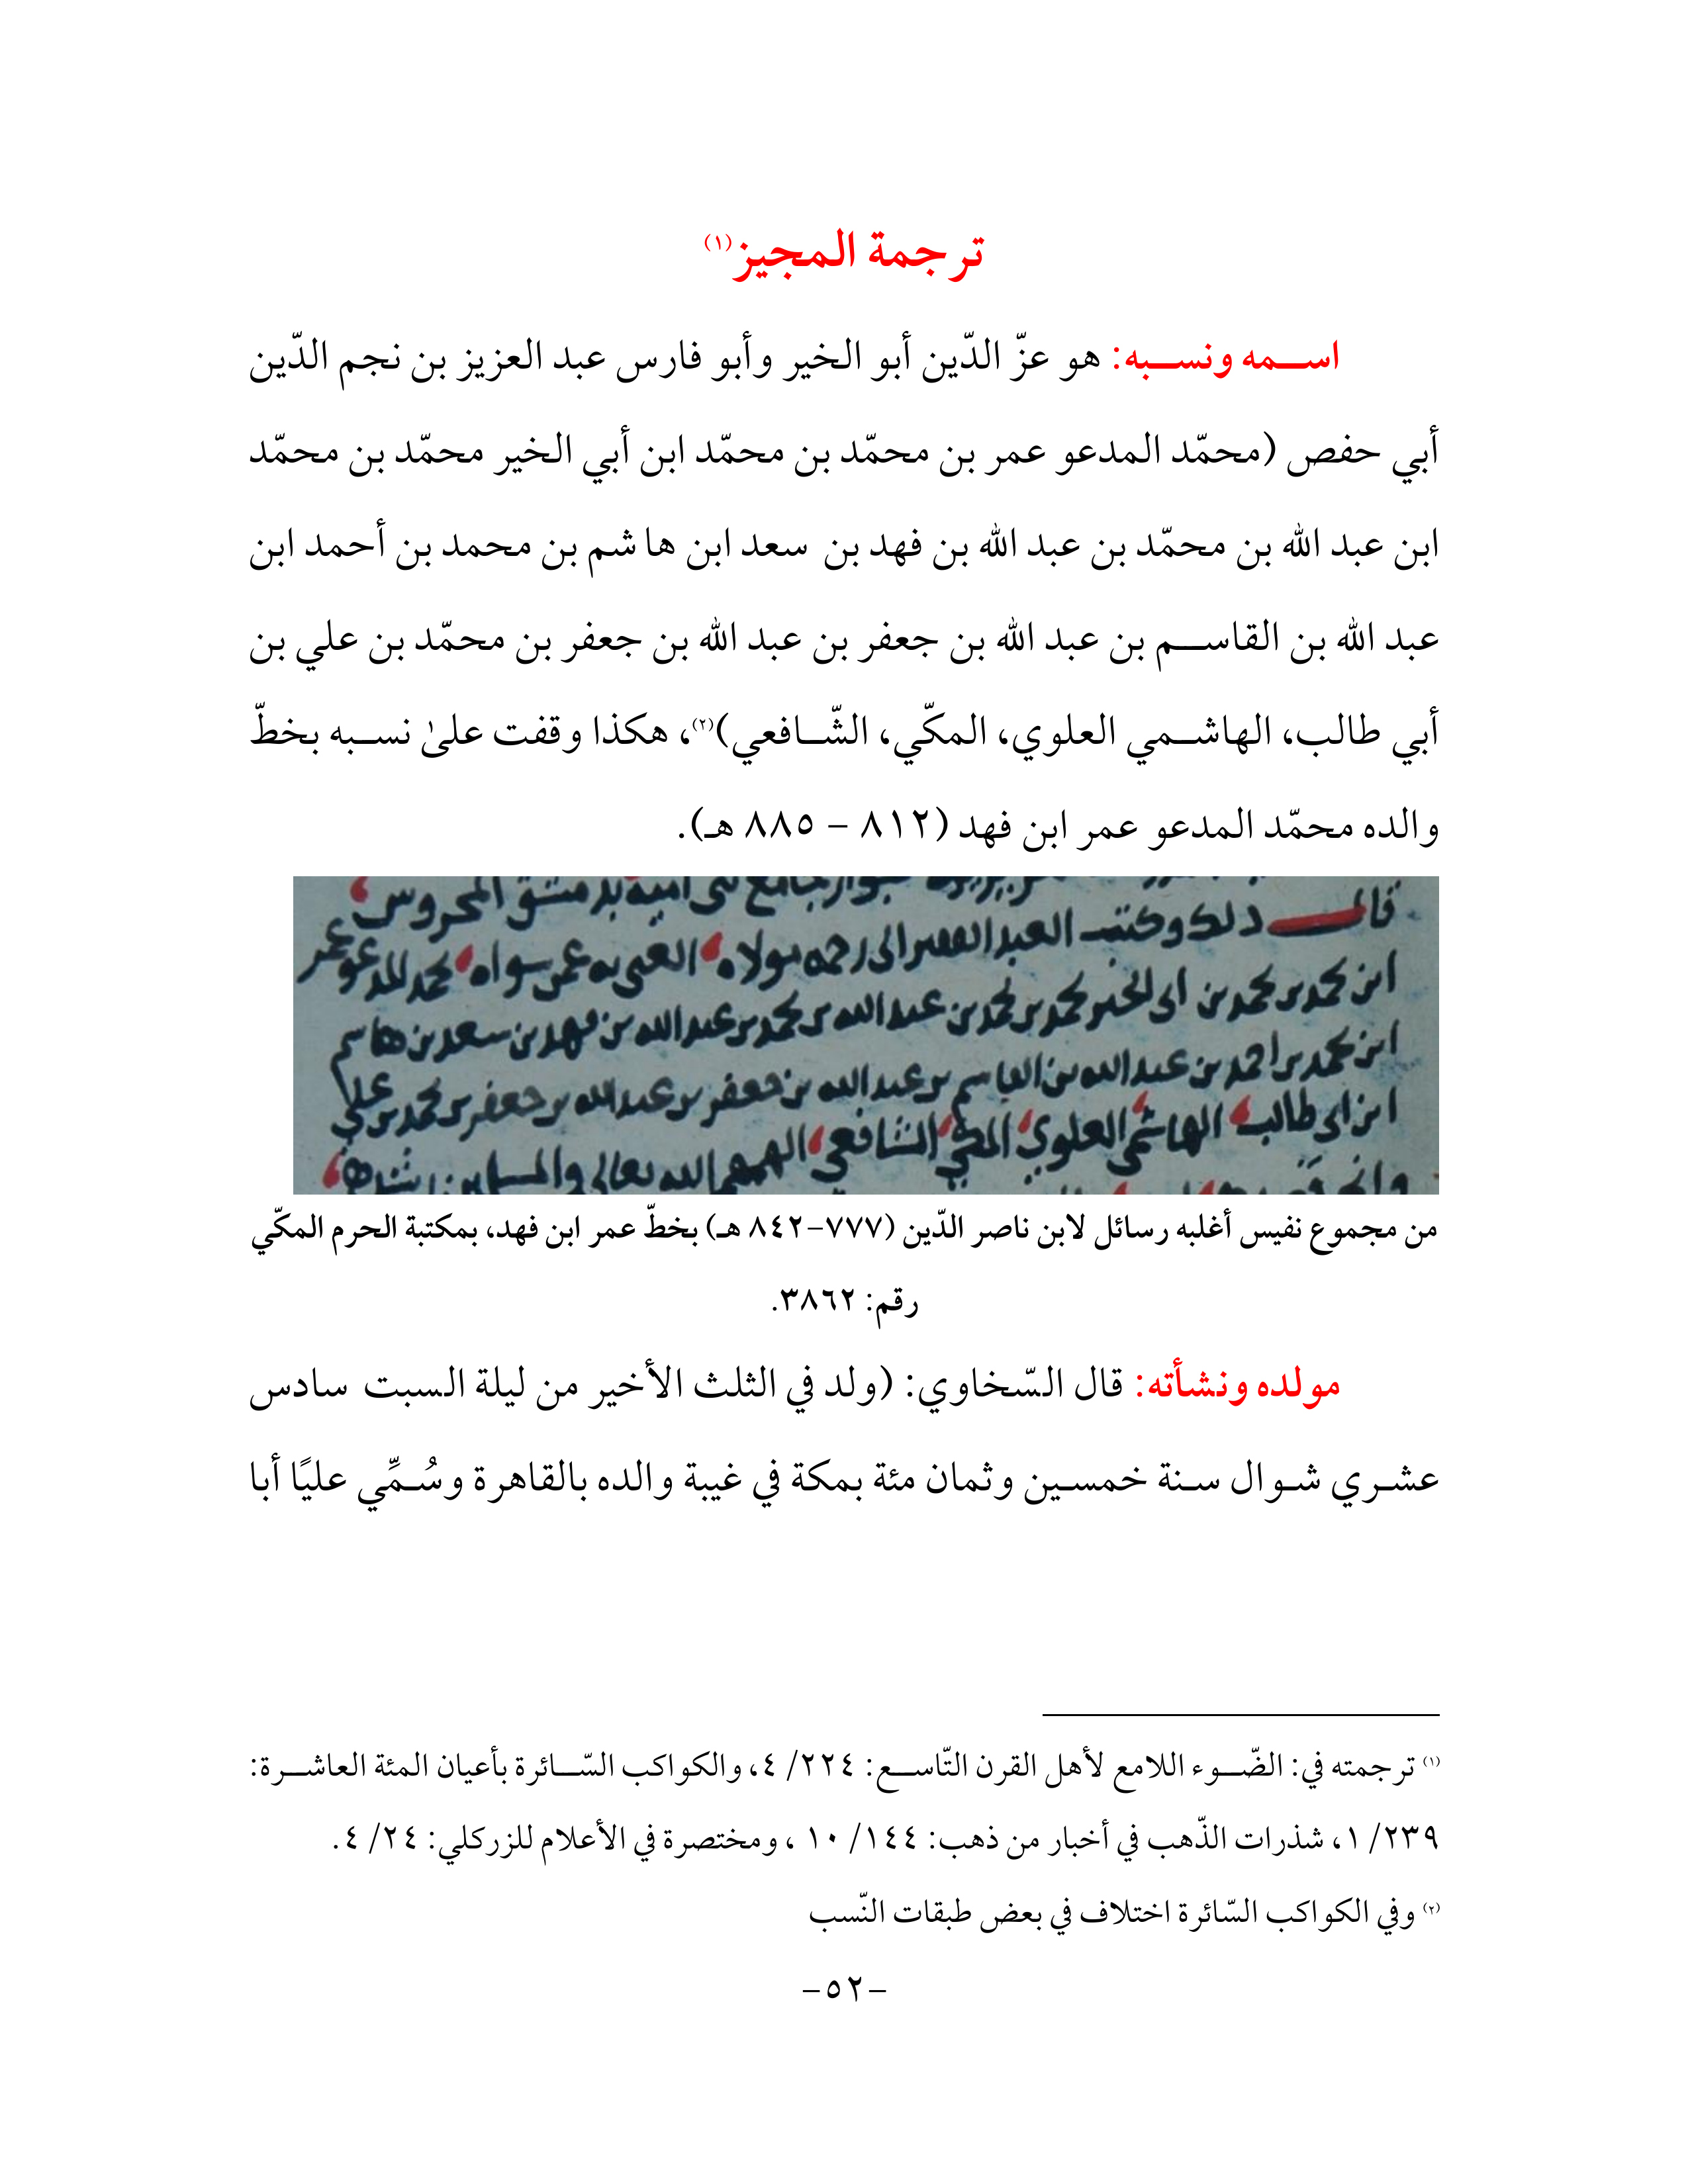 ترجمة المجيز(١)
اسمه ونسبه: هو عزّ الدّين أبو الخير وأبو فارس عبد العزيز بن نجم الدّين
أبي حفص (محمّد المدعو عمر بن محمّد بن محمّد ابن أبي الخير محمّد بن محمّد
ابن عبد الله بن محمّد بن عبد الله بن فهد بن سعد ابن هاشم بن محمد بن أحمد ابن
عبد الله بن القاسم بن عبد الله بن جعفر بن عبد الله بن جعفر بن محمّد بن علي بن
أبي طالب، الهاشمي العلوي، المكّي، الشّافعي)(٢)، هكذا وقفت علىٰ نسبه بخطّ
والده محمّد المدعو عمر ابن فهد (٨١٢ – ٨٨٥ هـ).
بدمشق المحروس
ذلك وكتب العبد الفقير الى رحمة مولاه الغني به عمن سواه محمد المدعو عمر
ابن محمد بن محمد بن ابى الخير محمد بن محمد بن عبد الله بن محمد بن عبد الله بن فهد بن سعد بن هاشم
ابن محمد بن احمد بن عبد الله بن القاسم بن عبد الله بن جعفر بن عبد الله بن جعفر بن محمد بن علي
ابن ابى طالب الهاشمي العلوي المكي الشافعي الله تعالى
من مجموع نفيس أغلبه رسائل لابن ناصر الدّين (٧٧٧-٨٤٢ هـ) بخطّ عمر ابن فهد، بمكتبة الحرم المكّي
رقم: ٣٨٦٢.
مولده ونشأته: قال السّخاوي: (ولد في الثلث الأخير من ليلة السبت سادس
عشري شوال سنة خمسين وثمان مئة بمكة في غيبة والده بالقاهرة وسُمِّي عليًا أبا
(١) ترجمته في: الضّوء اللامع لأهل القرن التّاسع: ٢٢٤/ ٤، والكواكب السّائرة بأعيان المئة العاشرة:
٢٣٩/ ١، شذرات الذّهب في أخبار من ذهب: ١٤٤/ ١٠ ، ومختصرة في الأعلام للزركلي: ٢٤/ ٤.
(٢) وفي الكواكب السّائرة اختلاف في بعض طبقات النّسب
-٥٢-